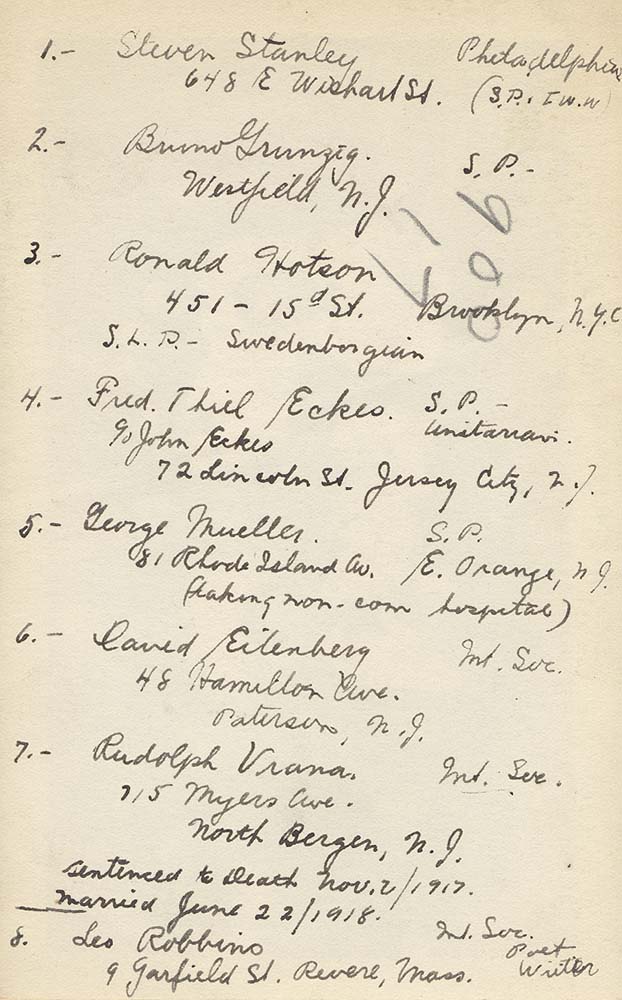 1.- Steven Stanley Philadelphia
648 E Wishart St. (S.P. I W.W)
2.- Bruno Grunzig. S. P.-
Westfield, N.J.
3.- Ronald Hotson
451 - 15d St. Brooklyn, N.Y.C
S.L.P.- Swedenborgian
4.- Fred. Thiel Eckes. S. P. -
c/o John Eckes Unitarian.
72 Lincoln St. Jersey City, N.J.
5.- George Mueller. S.P.
81 Rhode Island Av. E. Orange, N.J.
(taking non-com hospital)
6.- David Eilenberg Int. Soc.
48 Hamilton Ave.
Paterson, N.J.
7.- Rudolph Vrana. Int. Soc.
715 Myers Ave.
North Bergen, N.J.
sentenced to Death Nov. 2/1917.
married June 22/1918.
8. Leo Robbins Int. Soc.
9 Garfield St. Revere, Mass. Poet Writer